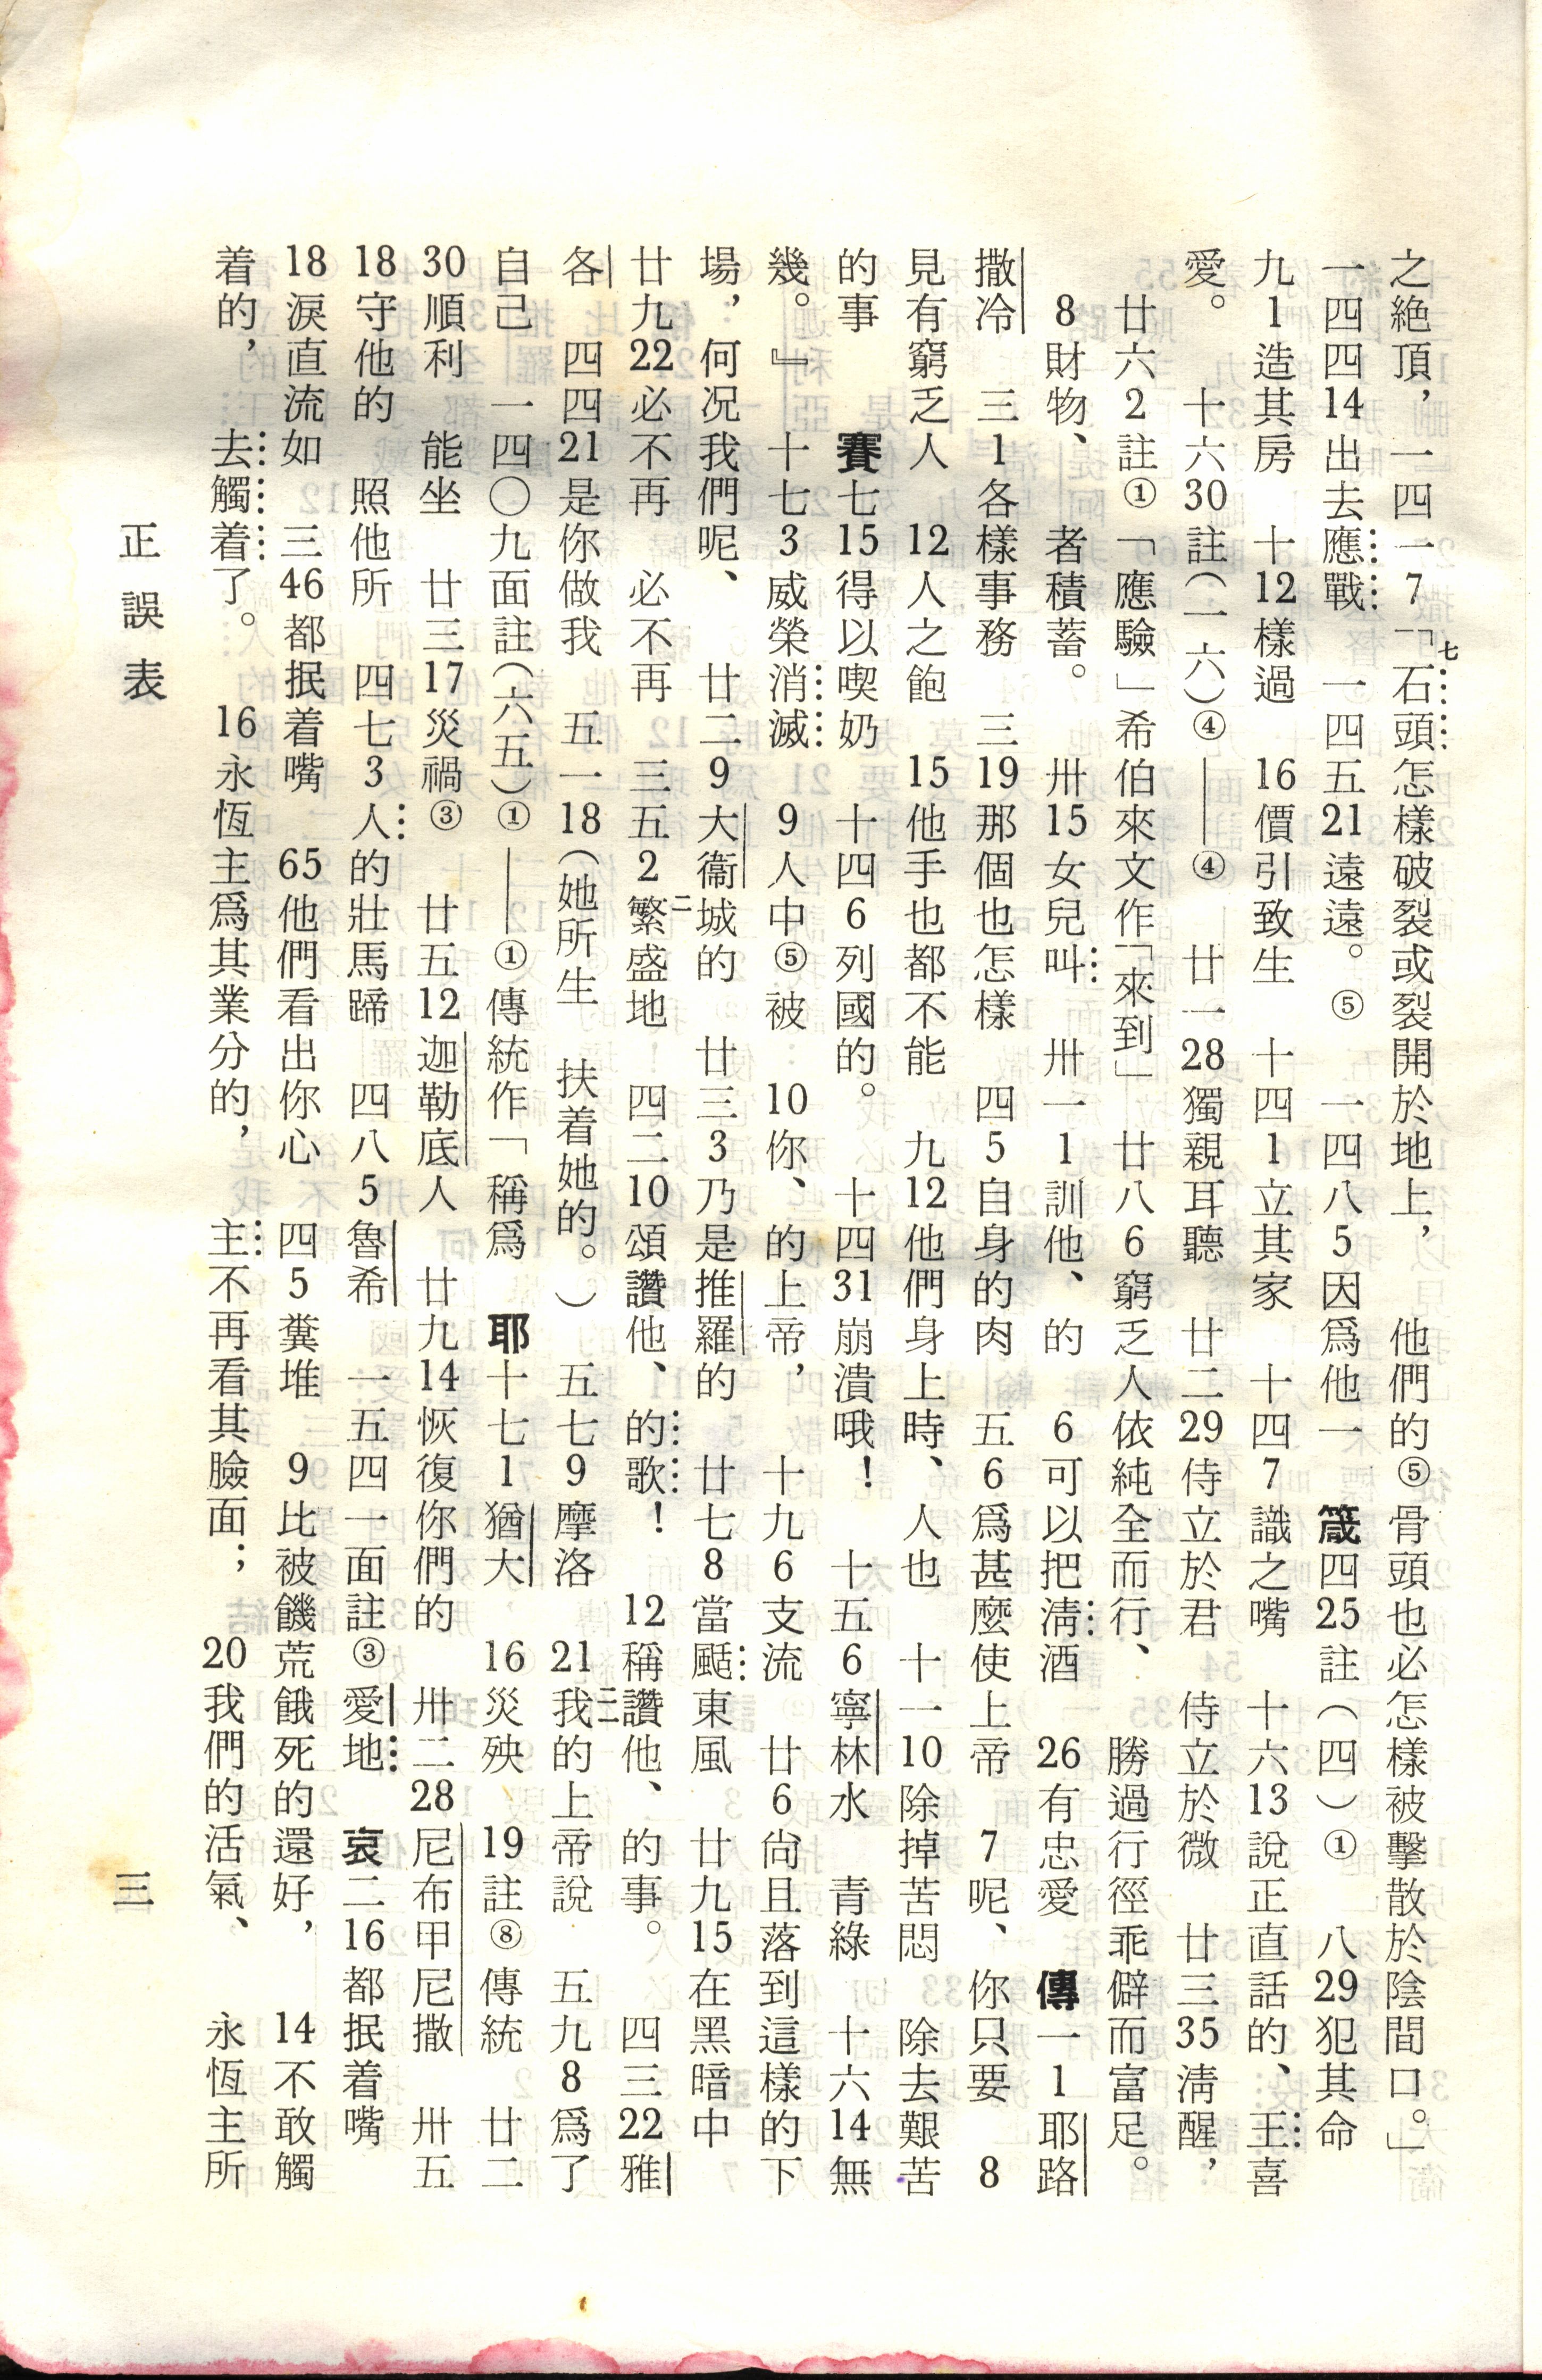 之絕頂，一四一7「七石頭怎樣破裂或裂開於地上，　他們的⑤骨頭也必怎樣被擊散於陰間口。」
一四四14出去應戰　一四五21遠遠。⑤　一四八5因爲他一　箴四25註（四）①　八29犯其命
九1造其房　十12樣過　16價引致生　十四1立其家　十四7識之嘴　十六13說正直話的、王喜
愛。　十六30註（一六）④——④　廿一28獨親耳聽　廿二29侍立於君　侍立於微　廿三35清醒，
廿六2註①「應驗」希伯來文作「來到」　廿八6窮乏人依純全而行、　勝過行徑乖僻而富足。
8財物、　者積蓄。　卅15女兒叫　卅一1訓他、的　6可以把淸酒　26有忠愛　傳一1耶路
撒冷　三1各樣事務　三19那個也怎樣　四5自身的肉　五6爲甚麼使上帝　7呢、　你只要　8
見有窮乏人　12人之飽　15他手也都不能　九12他們身上時、　人也　十一10除掉苦悶　除去艱苦
的事　賽七15得以喫奶　十四6列國的。　十四31崩潰哦！　十五6寧林水　青綠　十六14無
幾。』　十七3威榮消滅　9人中⑤被　10你、的上帝，　十九6支流　廿6尙且落到這樣的下
場，何況我們呢、　廿二9大衞城的　廿三3乃是推羅的　廿七8當颳東風　廿九15在黑暗中
廿九22必不再　必不再　三五2繁二盛地　四二10頌讚他、的歌！　12稱讚他、的事。　四三22雅
各　四四21是你做我　五一18（她所生　扶着她的。）　五七9摩洛　21我三的上帝說　五九8爲了
自己　一四〇九面註（六五）①——①傳統作「稱爲　耶十七1猶大　16災殃　19註⑧傳統　廿二
30順利　能坐　廿三17災禍③　廿五12迦勒底人　廿九14恢復你們的　卅二28尼布甲尼撒　卅五
18守他的　照他所　四七3人的壯馬蹄　四八5魯希　一五四一面註③愛地　哀二16都抿着嘴
18淚直流如　三46都抿着嘴　65他們看出你心　四5糞堆　9比被饑荒餓死的還好，　14不敢觸
着的，　去觸着了。　16永恆主爲其業分的，　主不再看其臉面；　20我們的活氣、　永恆主所
正誤表　三